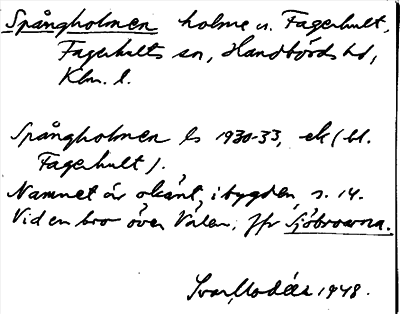 Spångholmen holme v. Fagerhult,
Fagerhults sn, Handbörds hd,
Klm. l.
Spångholmen ls 1930-33, ek (bl.
Fagerhult).
Namnet är okänt i bygden, s. 14.
Vid en bro över Välen; jfr Sjöbroarna.
Ivar Modéer 1948.